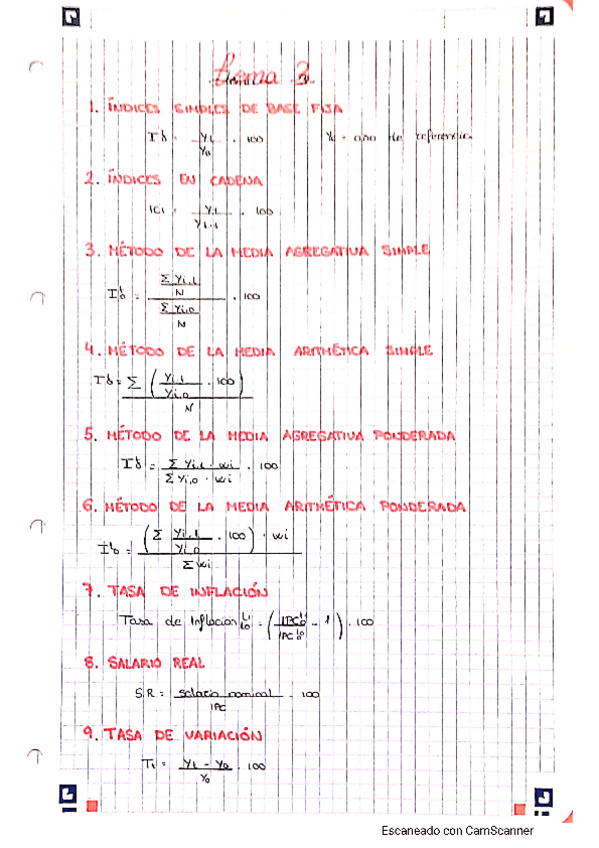 Tema 3
1. ÍNDICES SIMPLES DE BASE FIJA
I_0^t = y_t / y_0 · 100    y_0 = año de referencia
2. ÍNDICES EN CADENA
IC_t = y_t / y_{t-1} · 100
3. MÉTODO DE LA MEDIA AGREGATIVA SIMPLE
I_0^t = (Σ y_{i,t} / N) / (Σ y_{i,0} / N) · 100
4. MÉTODO DE LA MEDIA ARITMÉTICA SIMPLE
I_0^t = Σ (y_{i,t} / y_{i,0} · 100) / N
5. MÉTODO DE LA MEDIA AGREGATIVA PONDERADA
I_0^t = Σ y_{i,t} · wi / Σ y_{i,0} · wi · 100
6. MÉTODO DE LA MEDIA ARITMÉTICA PONDERADA
I_0^t = (Σ y_{i,t} / y_{i,0} · 100) · wi / Σ wi
7. TASA DE INFLACIÓN
Tasa de Inflación = (IPC / IPC - 1) · 100
8. SALARIO REAL
S.R = salario nominal / IPC · 100
9. TASA DE VARIACIÓN
T_t = y_t - y_0 / y_0 · 100
Escaneado con CamScanner